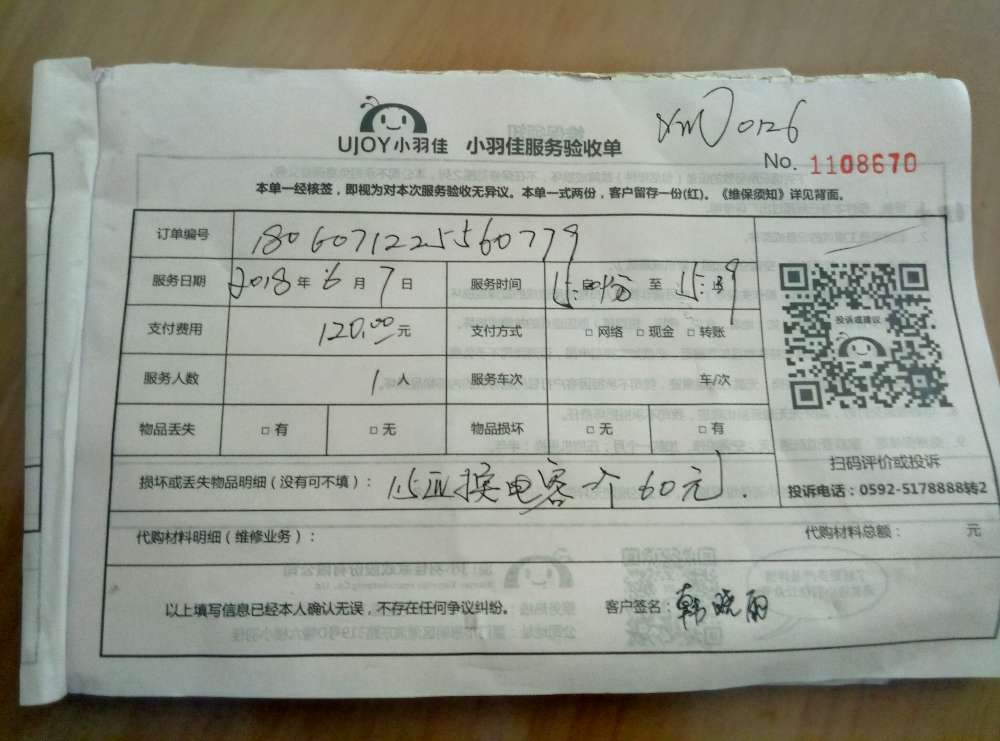 UJOY小羽佳 小羽佳服务验收单
No. 1108670
本单一经核签，即视为对本次服务验收无异议。本单一式两份，客户留存一份(红)。《维保须知》详见背面。
订单编号 1806071225560779
服务日期 2018 年 6 月 7 日 服务时间 至
支付费用 120.00 元 支付方式 □ 网络 □ 现金 □ 转账
服务人数 1 人 服务车次 车/次
物品丢失 □ 有 □ 无 物品损坏 □ 无 □ 有
投诉或建议
扫码评价或投诉
投诉电话：0592-5178888转2
损坏或丢失物品明细（没有可不填）： 1.5匹换电容一个60元.
代购材料明细（维修业务）： 代购材料总额： 元
以上填写信息已经本人确认无误，不存在任何争议纠纷。 客户签名：韩晓丽